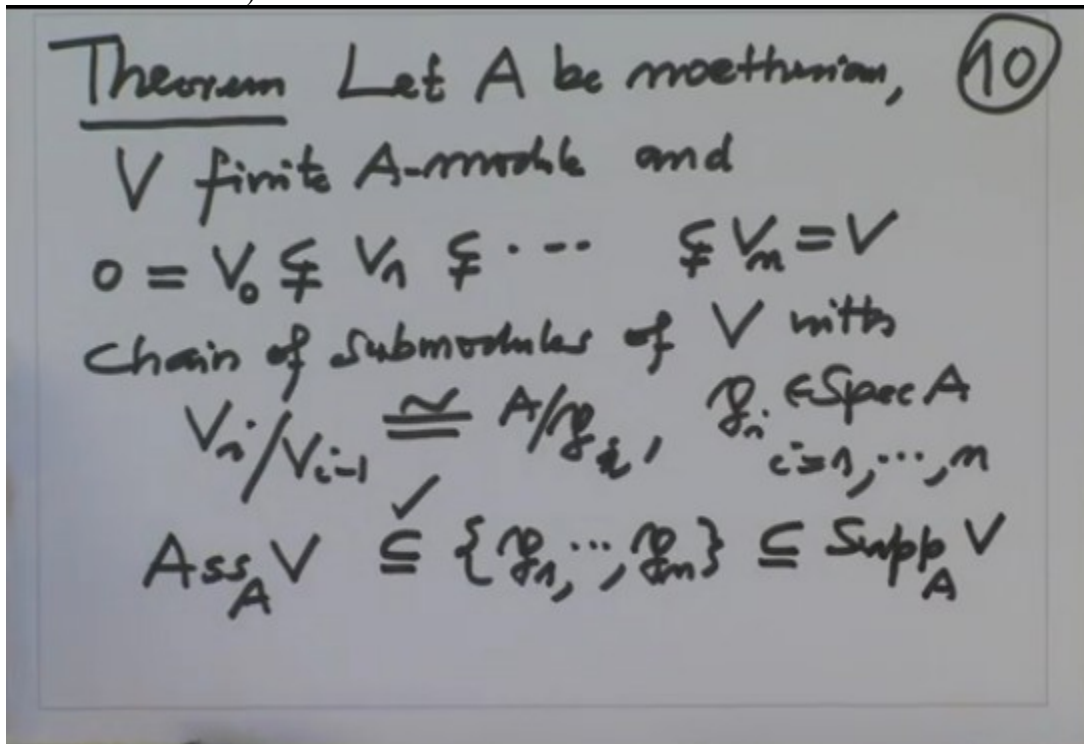 Theorem Let A be noetherian, ⑩
V finite A-module and
0 = V₀ ⊊ V₁ ⊊ ··· ⊊ Vₙ = V
Chain of submodules of V with
Vᵢ/Vᵢ₋₁ ≅ A/𝔭ᵢ, 𝔭ᵢ ∈ Spec A
i=1,···,n
✓
Ass_A V ⊆ {𝔭₁,···,𝔭ₙ} ⊆ Supp_A V